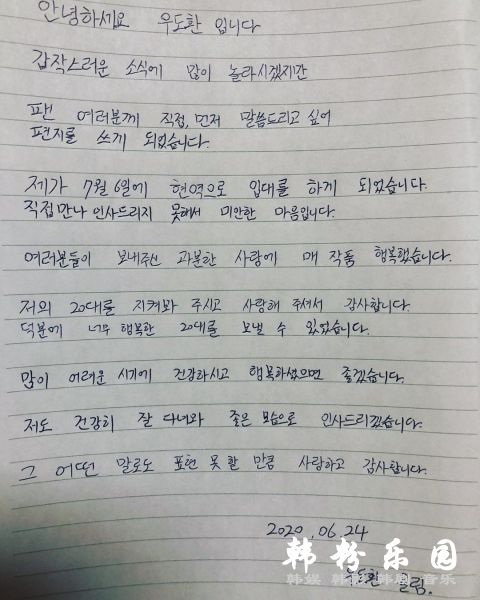 안녕하세요 우도환 입니다
갑작스러운 소식에 많이 놀라시겠지만
팬 여러분께 직접, 먼저 말씀드리고 싶어
편지를 쓰게 되었습니다.
제가 7월 6일에 현역으로 입대를 하게 되었습니다.
직접 만나 인사드리지 못해서 미안한 마음입니다.
여러분들이 보내주신 과분한 사랑에 매 작품 행복했습니다.
저의 20대를 지켜봐 주시고 사랑해 주셔서 감사합니다.
덕분에 너무 행복한 20대를 보낼 수 있었습니다.
많이 어려운 시기에 건강하시고 행복하셨으면 좋겠습니다.
저도 건강히 잘 다녀와 좋은 모습으로 인사드리겠습니다.
그 어떤 말로도 표현 못 할 만큼 사랑하고 감사합니다.
2020.06.24
韩粉乐园
韩娱 韩影 韩剧 音乐
우도환 올림.